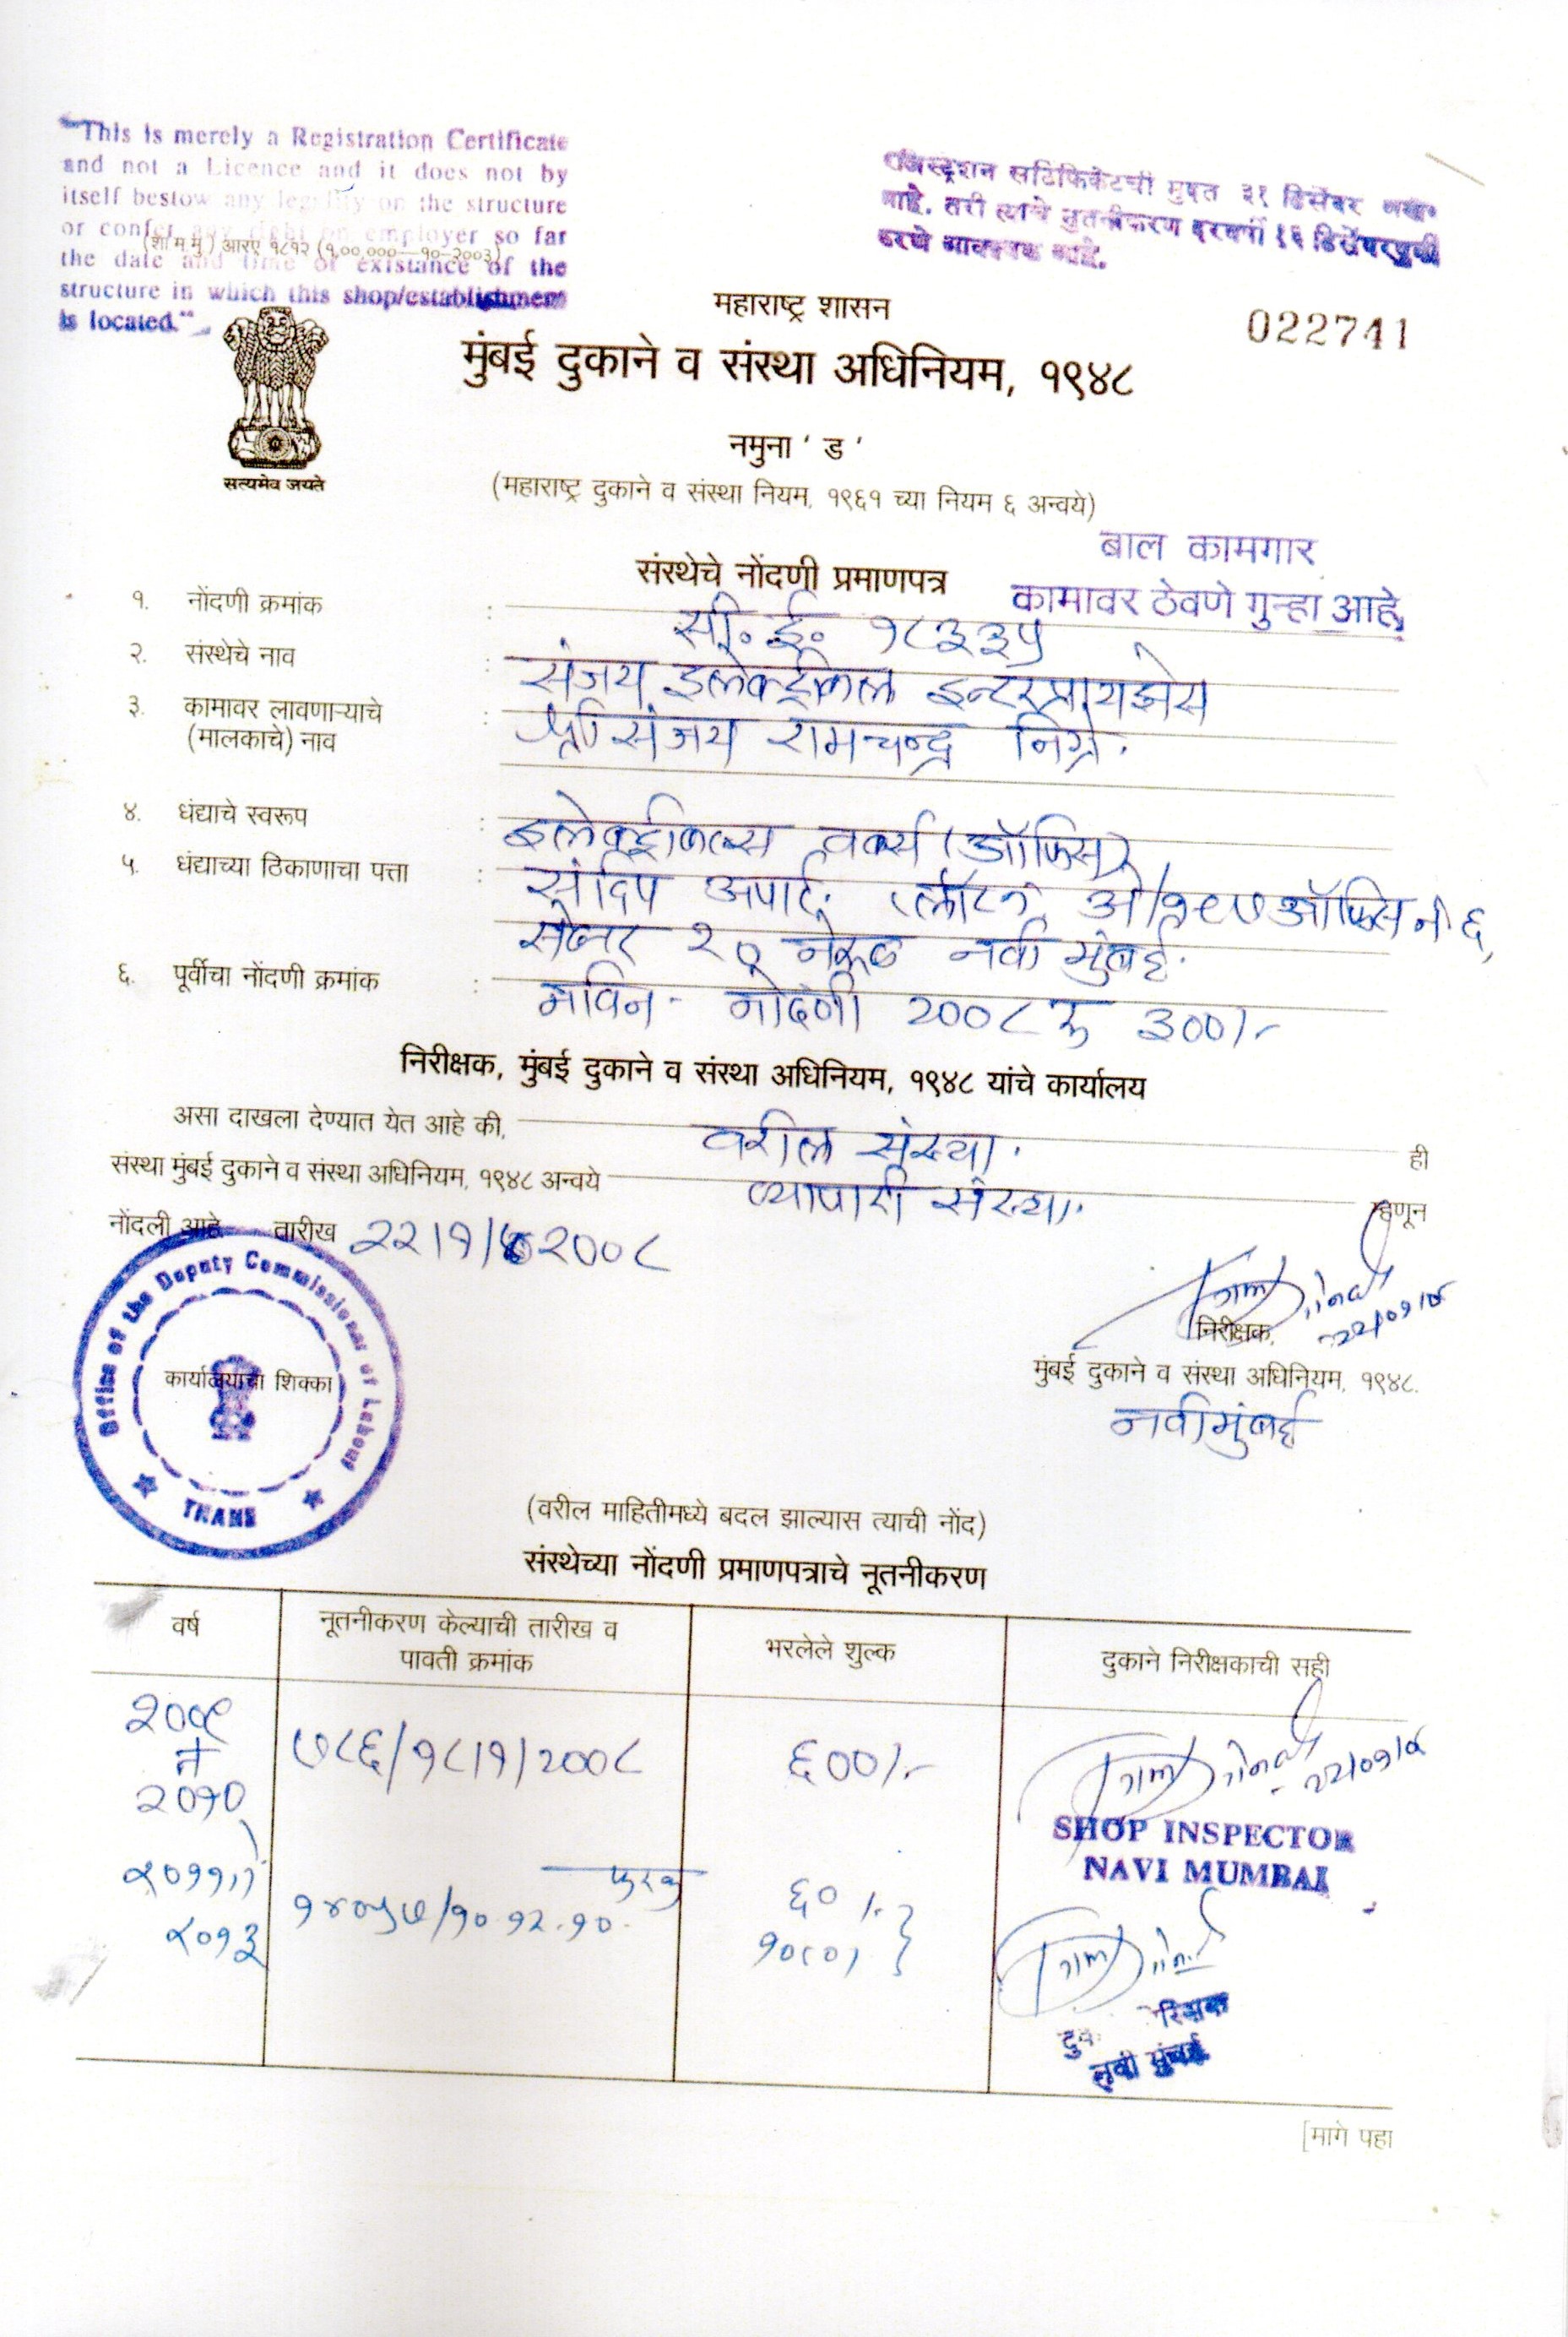 "This is merely a Registration Certificate
and not a Licence and it does not by
itself bestow any legality on the structure
or confer any right on employer so far
(शा म मु ) आरए १८१२ (१,००,०००—१०-२००३)
the date and time of existance of the
structure in which this shop/establishment
is located."
रजिस्ट्रेशन सर्टिफिकेटची मुदत ३१ डिसेंबर
आहे. तरी त्याचे नुतनीकरण दरवर्षी १५ डिसेंबरपुर्वी
करणे आवश्यक आहे.
महाराष्ट्र शासन
022741
मुंबई दुकाने व संस्था अधिनियम, १९४८
सत्यमेव जयते
नमुना ' ड '
(महाराष्ट्र दुकाने व संस्था नियम, १९६१ च्या नियम ६ अन्वये)
बाल कामगार
कामावर ठेवणे गुन्हा आहे,
संस्थेचे नोंदणी प्रमाणपत्र
१. नोंदणी क्रमांक : सी. ई. १८३३५
२. संस्थेचे नाव : संजय इलेक्ट्रीकल इन्टरप्रायझेस
३. कामावर लावणाऱ्याचे : श्री संजय रामचन्द्र
(मालकाचे) नाव
४. धंद्याचे स्वरूप : इलेक्ट्रीकल्स वर्क्स (ऑफिस)
५. धंद्याच्या ठिकाणाचा पत्ता : संदिप अपार्ट. प्लॉट नं. ओ/१९७ ऑफिस नं ६,
सेक्टर २० नेरूळ नवी मुंबई.
६. पूर्वीचा नोंदणी क्रमांक : नविन नोंदणी २००८ रु ३००/-
निरीक्षक, मुंबई दुकाने व संस्था अधिनियम, १९४८ यांचे कार्यालय
असा दाखला देण्यात येत आहे की, वरील संस्था. ही
संस्था मुंबई दुकाने व संस्था अधिनियम, १९४८ अन्वये व्यापारी संस्था. म्हणून
नोंदली आहे तारीख २२/१/२००८
Office of the Deputy Commissioner of Labour
THANE
कार्यालयाचा शिक्का
निरीक्षक,
मुंबई दुकाने व संस्था अधिनियम, १९४८.
नवी मुंबई
(वरील माहितीमध्ये बदल झाल्यास त्याची नोंद)
संस्थेच्या नोंदणी प्रमाणपत्राचे नूतनीकरण
वर्ष
नूतनीकरण केल्याची तारीख व
पावती क्रमांक
भरलेले शुल्क
दुकाने निरीक्षकाची सही
२००९
ते
२०१०
७८६/१८/१/२००८
६००/-
SHOP INSPECTOR
NAVI MUMBAI
२०११ ते
२०१३
फरक
१४०५७/१०.१२.१०.
६०/-
१०८०/
नवी मुंबई
[मागे पहा